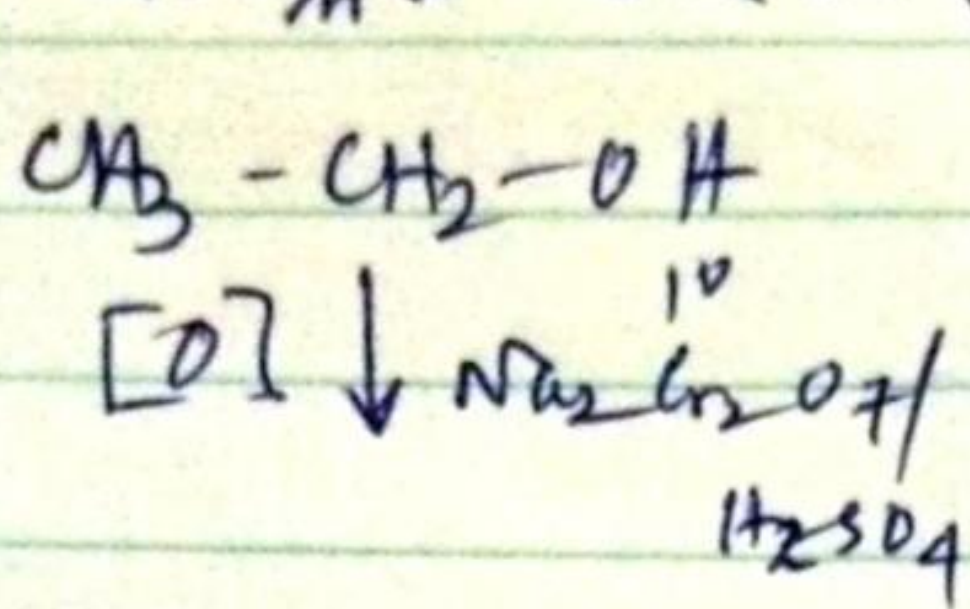 CH3 - CH2 - OH
1°
[O] ↓ Na2Cr2O7/
H2SO4